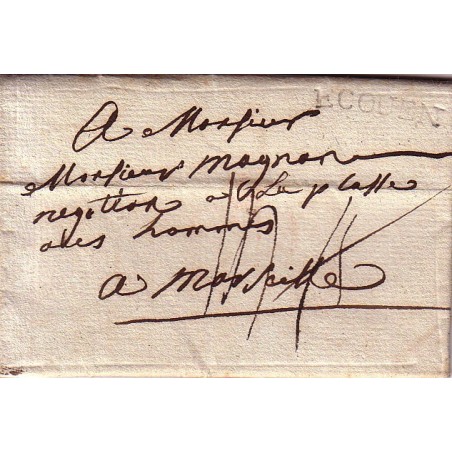 ECOUEN
A Monsieur
Monsieur magnan
negotian a La plasse
des hommes
a marseille